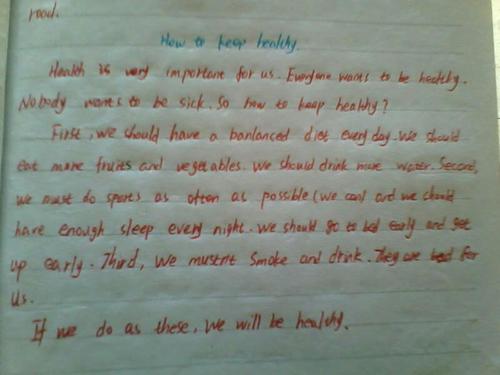 road.
How to keep healthy.
Health is very important for us. Everyone wants to be healthy.
Nobody wants to be sick. So how to keep healthy?
First, we should have a banlanced diet every day. We should
eat more fruits and vegetables. We should drink more water. Second,
we must do sports as often as possible (we can) and we should
have enough sleep every night. We should go to bed early and get
up early. Third, we mustn't smoke and drink. They are bad for
us.
If we do as these, we will be healthy.